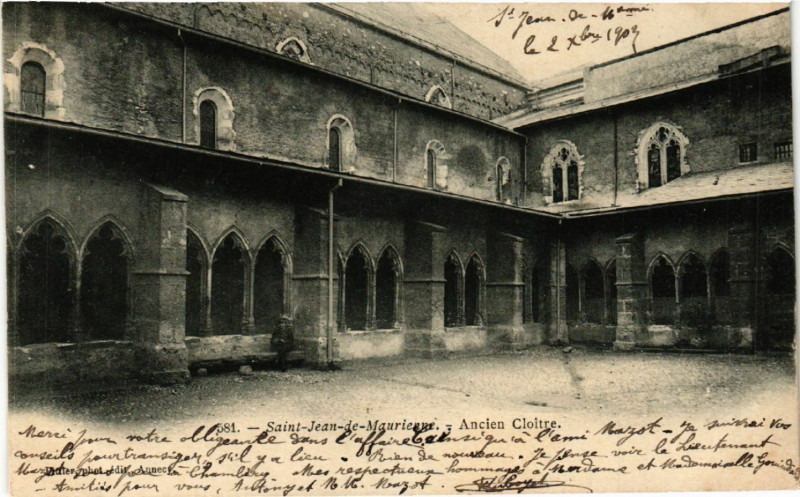 St Jean-de-Mnne
le 2 Xbre 1903
581. - Saint-Jean-de-Maurienne. - Ancien Cloître.
Merci pour votre obligeante dans l'affaire ainsi qu'à l'ami Mazot - Je suivrai vos
conseils pour transiger s'il y a lieu - Rien de nouveau. Je pense voir le lieutenant
Pittier, phot. édit. Annecy
à Chambéry - Mes respectueux hommages à Madame et Mademoiselle
Amitiés pour vous, et Mazot.